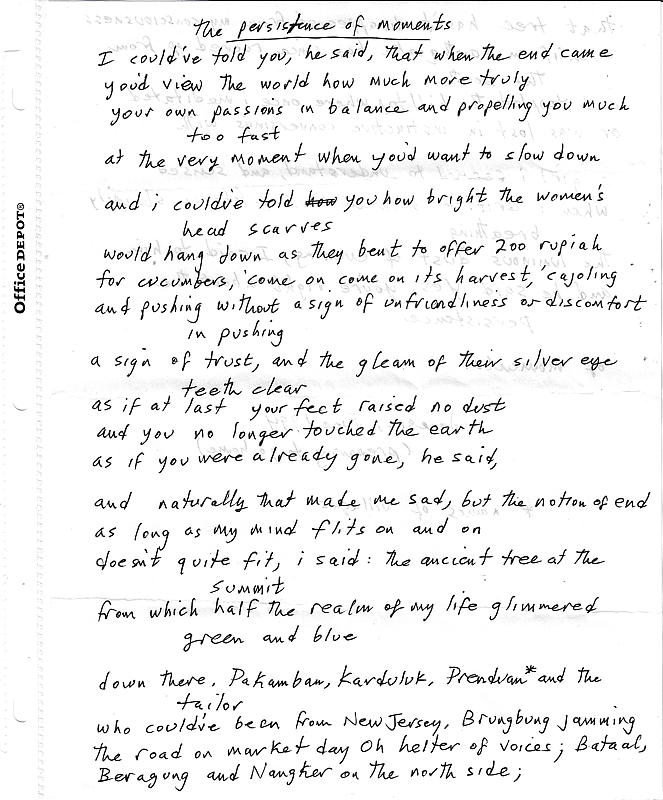 the persistence of moments
I could've told you, he said, that when the end came
you'd view the world how much more truly
your own passions in balance and propelling you much
too fast
at the very moment when you'd want to slow down
and i could've told how you how bright the women's
head scarves
would hang down as they bent to offer 200 rupiah
for cucumbers, 'come on come on its harvest,' cajoling
and pushing without a sign of unfriendliness or discomfort
in pushing
a sign of trust, and the gleam of their silver eye
teeth clear
as if at last your feet raised no dust
and you no longer touched the earth
as if you were already gone, he said,
and naturally that made me sad, but the notion of end
as long as my mind flits on and on
doesn't quite fit, i said: the ancient tree at the
summit
from which half the realm of my life glimmered
green and blue
down there. Pakamban, Karduluk, Prendvan* and the
tailor
who could've been from New Jersey, Brungbung jamming
the road on market day Oh helter of voices; Bataal,
Beragung and Nangker on the north side;
Office DEPOT®